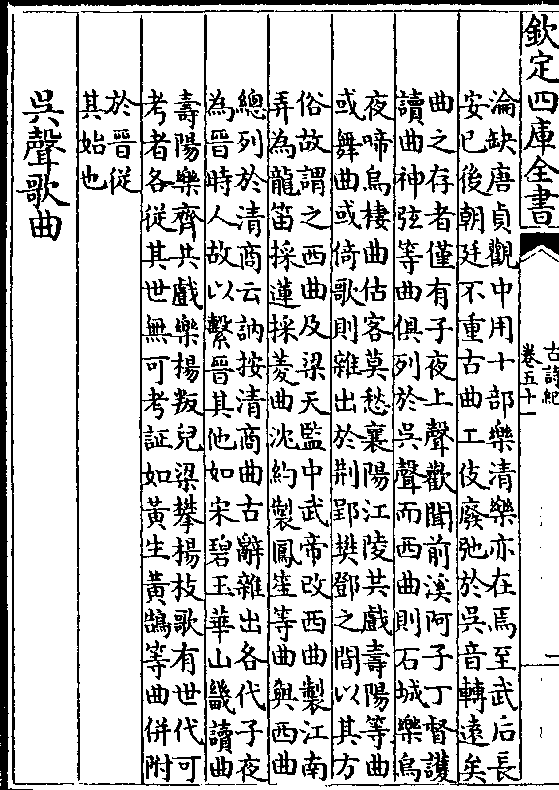 欽定四庫全書
古詩紀
卷五十一
一
淪缺唐貞觀中用十部樂清樂亦在焉至武后長
安已後朝廷不重古曲工伎廢弛於吳音轉遠矣
曲之存者僅有子夜上聲歡聞前溪阿子丁督護
讀曲神弦等曲俱列於吳聲而西曲則石城樂烏
夜啼烏棲曲估客莫愁襄陽江陵共戲壽陽等曲
或舞曲或倚歌則雜出於荆郢樊鄧之間以其方
俗故謂之西曲及梁天監中武帝改西曲製江南
弄為龍笛採蓮採菱曲沈約製鳳笙等曲與西曲
總列於清商云訥按清商曲古辭雜出各代子夜
為晉時人故以繫晉其他如宋碧玉華山畿讀曲
壽陽樂齊共戲樂楊叛兒梁攀楊枝歌有世代可
考者各從其世無可考証如黃生黃鵠等曲併附
於晉從
其始也
吳聲歌曲